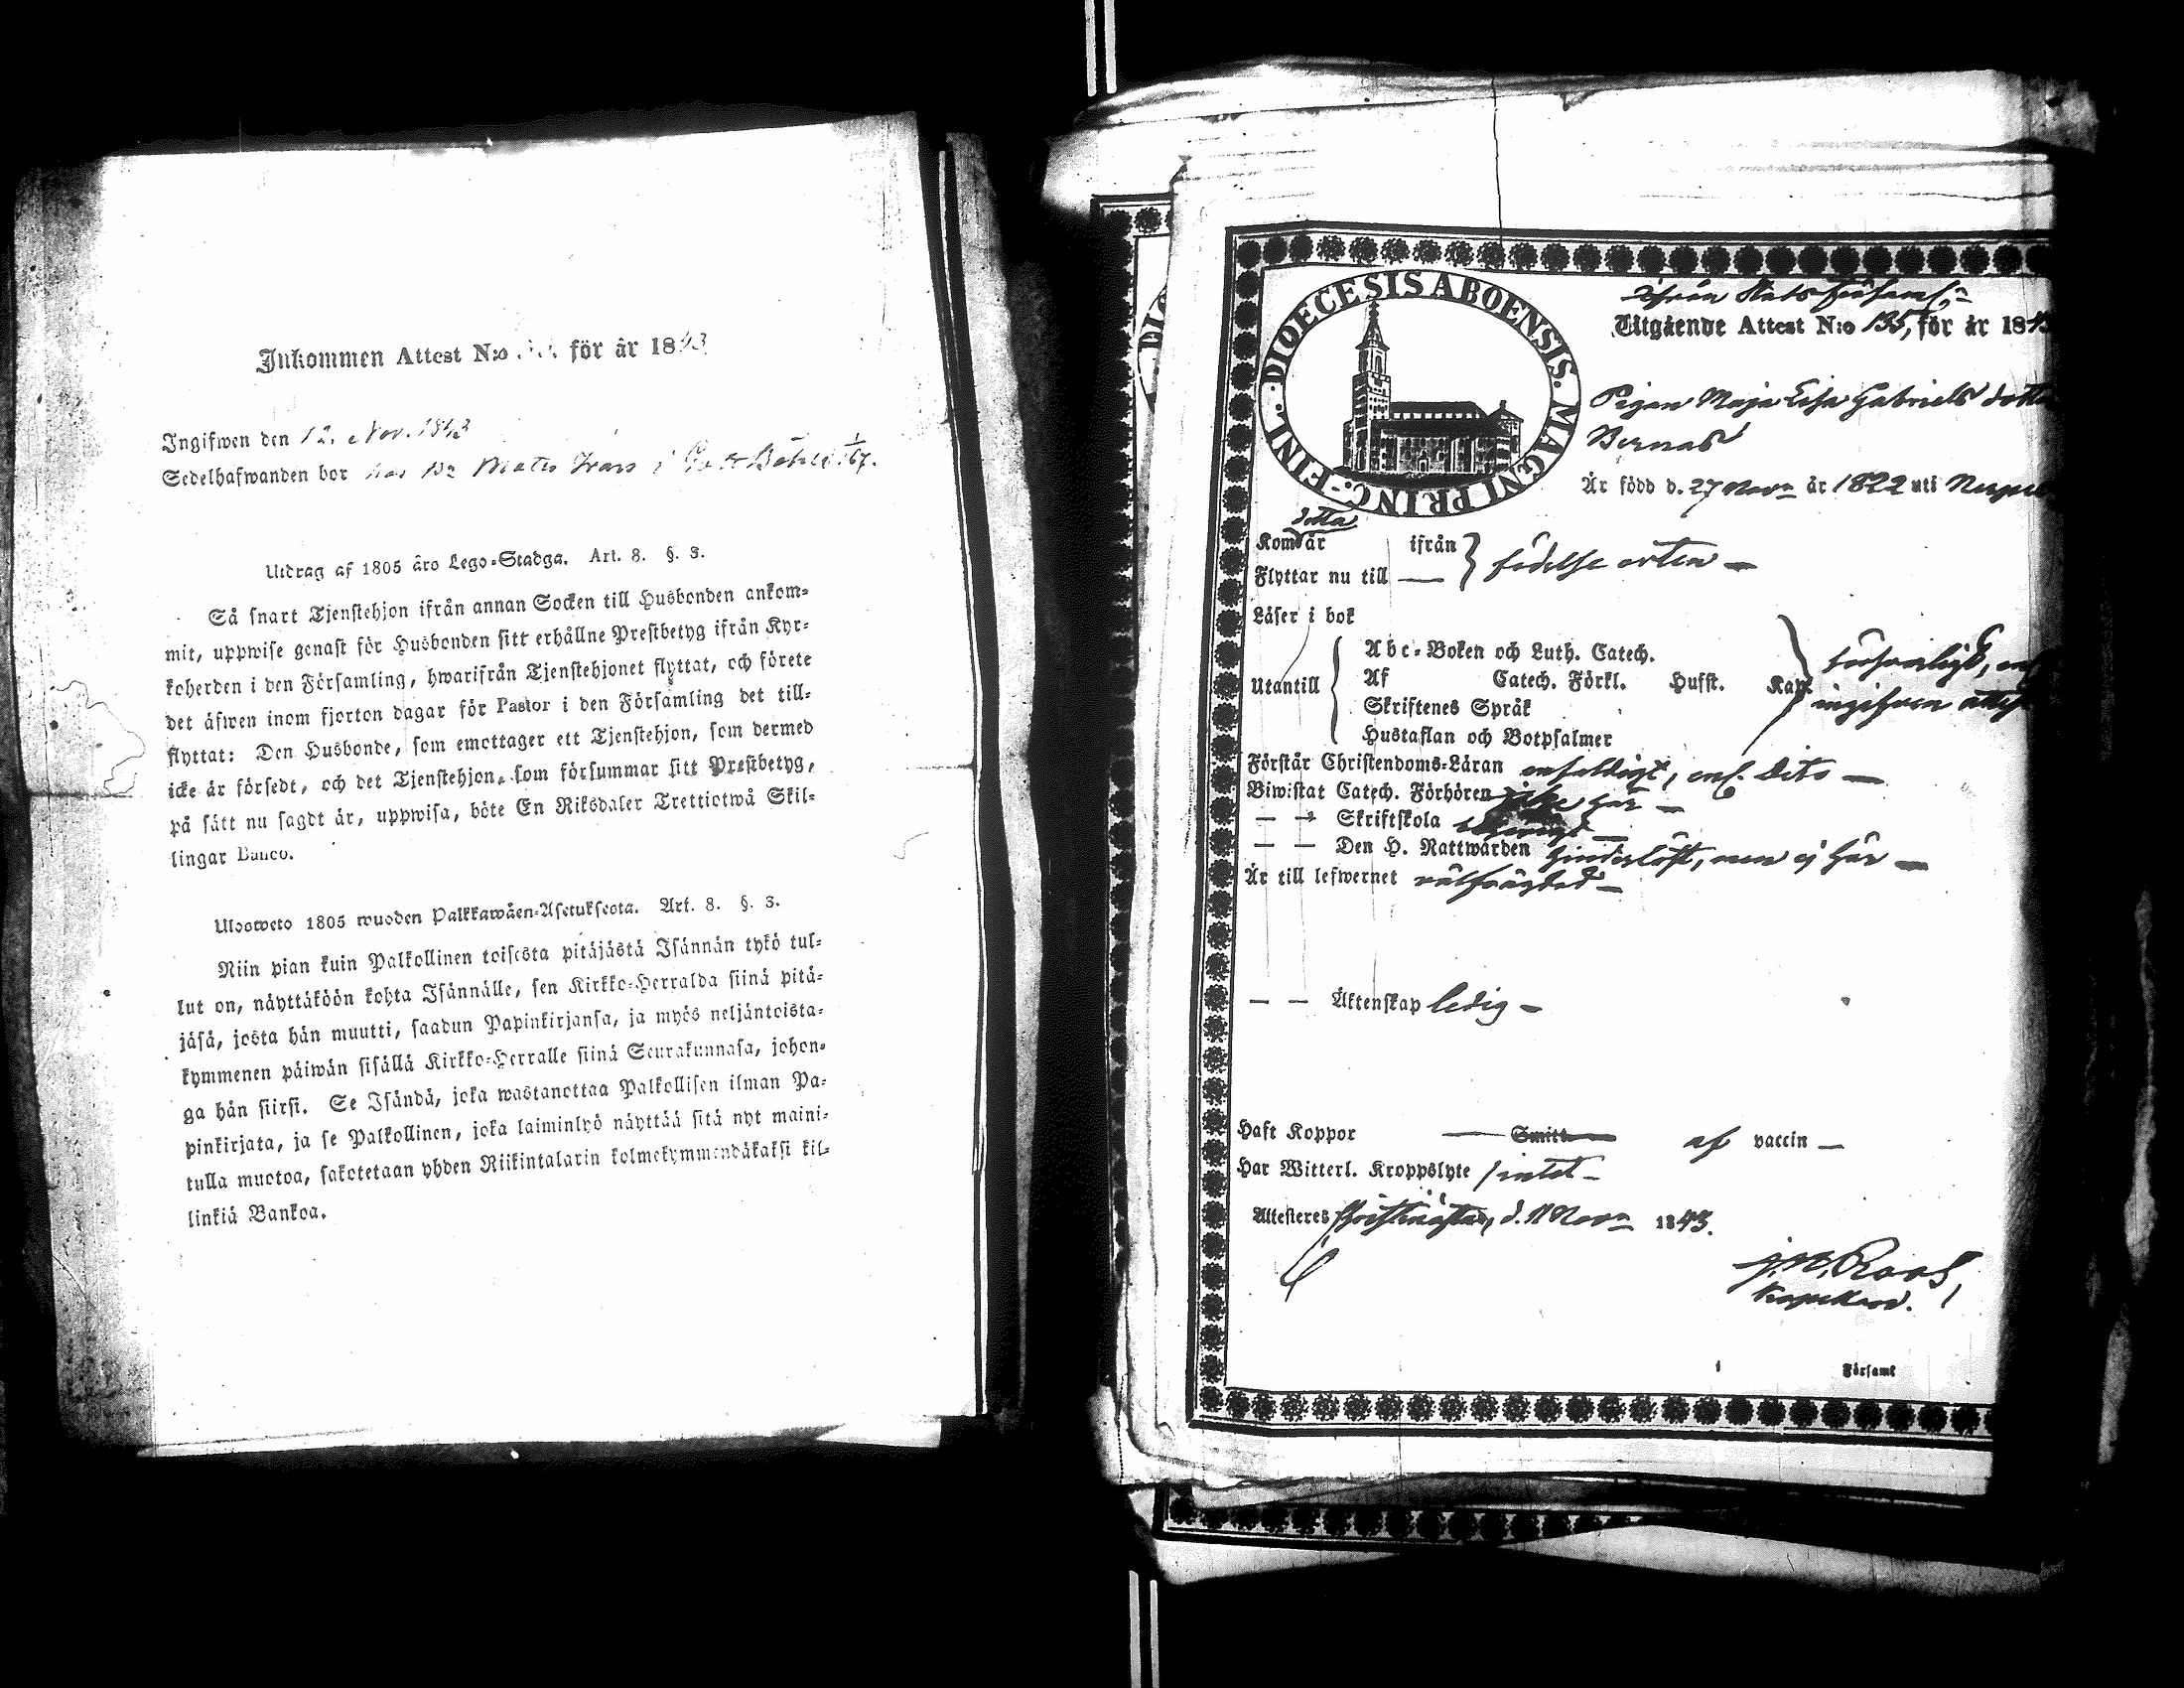 Inkommen Attest N:o för år 1843
Ingifwen den 12. Nov. 1843
Sedelhafwanden bor hos Mats i
Utdrag af 1805 års Lego-Stadga. Art. 8. §. 3.
Så snart Tjenstehjon ifrån annan Socken till Husbonden ankom-
mit, uppwise genast för Husbonden sitt erhållne Prestbetyg ifrån Kyr-
koherden i den Församling, hwarifrån Tjenstehjonet flyttat, och förete
det äfwen inom fjorton dagar för Pastor i den Församling det till-
flyttat: Den Husbonde, som emottager ett Tjenstehjon, som dermed
icke är försedt, och det Tjenstehjon, som försummar sitt Prestbetyg,
på sätt nu sagdt är, uppwisa, böte En Riksdaler Trettiotwå Skil-
lingar Banco.
Ulosweto 1805 wuoden Palkkawäen-Asetuksesta. Art. 8. §. 3.
Niin pian kuin Palkollinen toisesta pitäjästä Isännän tykö tul-
lut on, näyttäköön kohta Isännälle, sen Kirkko-Herralda siinä pitä-
jäsä, josta hän muutti, saadun Papinkirjansa, ja myös neljäntoista-
kymmenen päiwän sisällä Kirkko-Herralle siinä Seurakunnasa, johon-
ga hän siirsi. Se Isändä, joka wastanottaa Palkollisen ilman Pa-
pinkirjata, ja se Palkollinen, joka laiminlyö näyttää sitä nyt maini-
tulla muotoa, sakotetaan yhden Riikintalarin kolmekymmendäkaksi kil-
linkiä Bankoa.
DIOECESIS ABOENSIS. MAGNI PRINC. FINL.
ifrån
Utgående Attest N:o 135, för år 1843
Pigan Maja Lisa Gabriels dotter
Bernas
Är född d. 27 Nov. år 1822 uti
detta
Kom år ifrån
Flyttar nu till — födelse orten —
Läser i bok
Abc-Boken och Luth. Catech.
Utantill Af Catech. Förkl. Husst. Kap. försvarligt, enl.
Skriftenes Språk ingifven attest
Hustaflan och Botpsalmer
Förstår Christendoms-Läran enfaldigt, enl. dito —
Biwistat Catech. Förhören icke här —
— — Skriftskola
— — Den H. Nattwarden hinderlöst, men ej här —
Är till lefwernet välfrägdad —
— — Äktenskap ledig —
Haft Koppor — Smitt — af vaccin —
Har Witterl. Kroppslyte intet —
Attesteres Christinestad, d. 11 Nov. 1843.
J. M. Roos,
Kapellan.
Församl